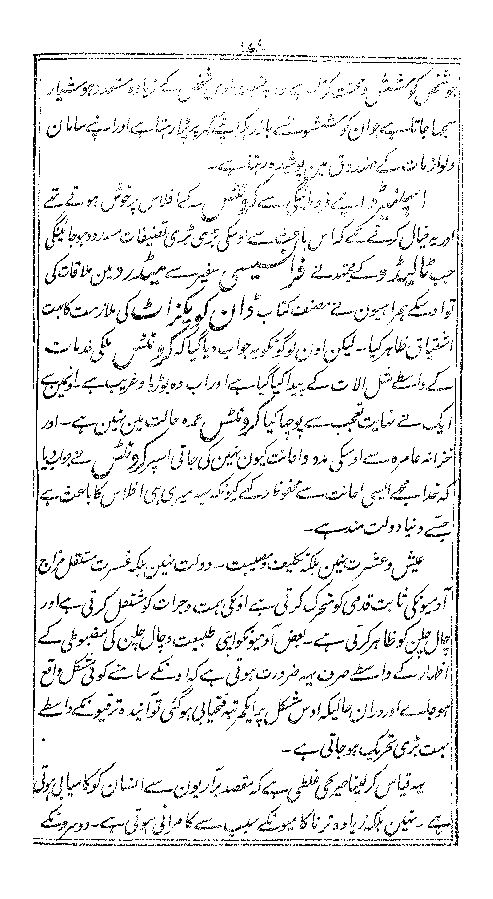 جو شخص کو مشقت و محنت کرتا ہے وہ دوسری شخص سے زیادہ مستعد و ہوشیار
سمجھا جاتا ہے جوان کوششونسے باز رکھا اپنے گھر پڑا رہتا ہے اور اپنے سامان
ولوازمات کے صندوق مین پوشیدہ رہتا ہے۔
اسپانیرڈ اپنے دیوانگی سے کرونٹس کے افلاس پر خوش ہوتے تھے
اور یہ خیال کرتے تھے کہ اس باعث سے اوسکی بڑی بڑی تصنیفات مسدود ہو جائینگی
جب ٹالیڈو کے مجتہد نے فرانسیسی سفیر سے میڈرڈ مین ملاقات کی
تو اوسکے ہمراہیون نے مصنف کتاب ڈان کویکزاٹ کی ملازمت کا بہت
اشتیاق ظاہر کیا۔ لیکن اون لوگونکو یہ جواب دیا گیا کہ کرونٹس ملکی خدمات
کے واسطے مثل آلات کے پیدا کیا گیا ہے اور اب وہ بوڑھا و غریب ہے۔ اونمین سے
ایک نے نہایت تعجب سے پوچھا کیا کرونٹس عمدہ حالت مین نہین ہے۔ اور
خزانہ عامرہ سے اوسکی مدد و اعانت کیون نہین کی جاتی اسپر کرونٹس نے جواب دیا
کہ خدا مجھے ایسی اعانت سے محفوظ رکھے کیونکہ یہ میری ہی افلاس کا باعث ہے
جس سے دنیا دولت مند ہے۔
عیش و عشرت نہین بلکہ تکلیف و مصیبت۔ دولت نہین بلکہ عسرت مستقل مزاج
آدمیونکی ثابت قدمی کو متحرک کرتی ہے اونکی ہمت و جرات کو مشتعل کرتی ہے اور
چال چلن کو ظاہر کرتی ہے۔ بعض آدمیونکو اپنی طبیعت و چال چلن کی مضبوطی کے
اظہار کے واسطے صرف یہہ ضرورت ہوتی ہے کہ اونکے سامنے کوئی مشکل واقع
ہو جاوے اور دران حالیکہ اوس مشکل پر ایکمرتبہ فتحیابی ہو گئی تو آئیندہ ترقیونکے واسطے
بہت بڑی تحریک ہو جاتی ہے۔
یہہ قیاس کر لینا صریحی غلطی ہے کہ مقصد برآریون سے انسان کو کامیابی ہوتی
ہے۔ نہین بلکہ زیادہ تر ناکامیونکے سبب سے کامرانی ہوتی ہے۔ دوسرونکے